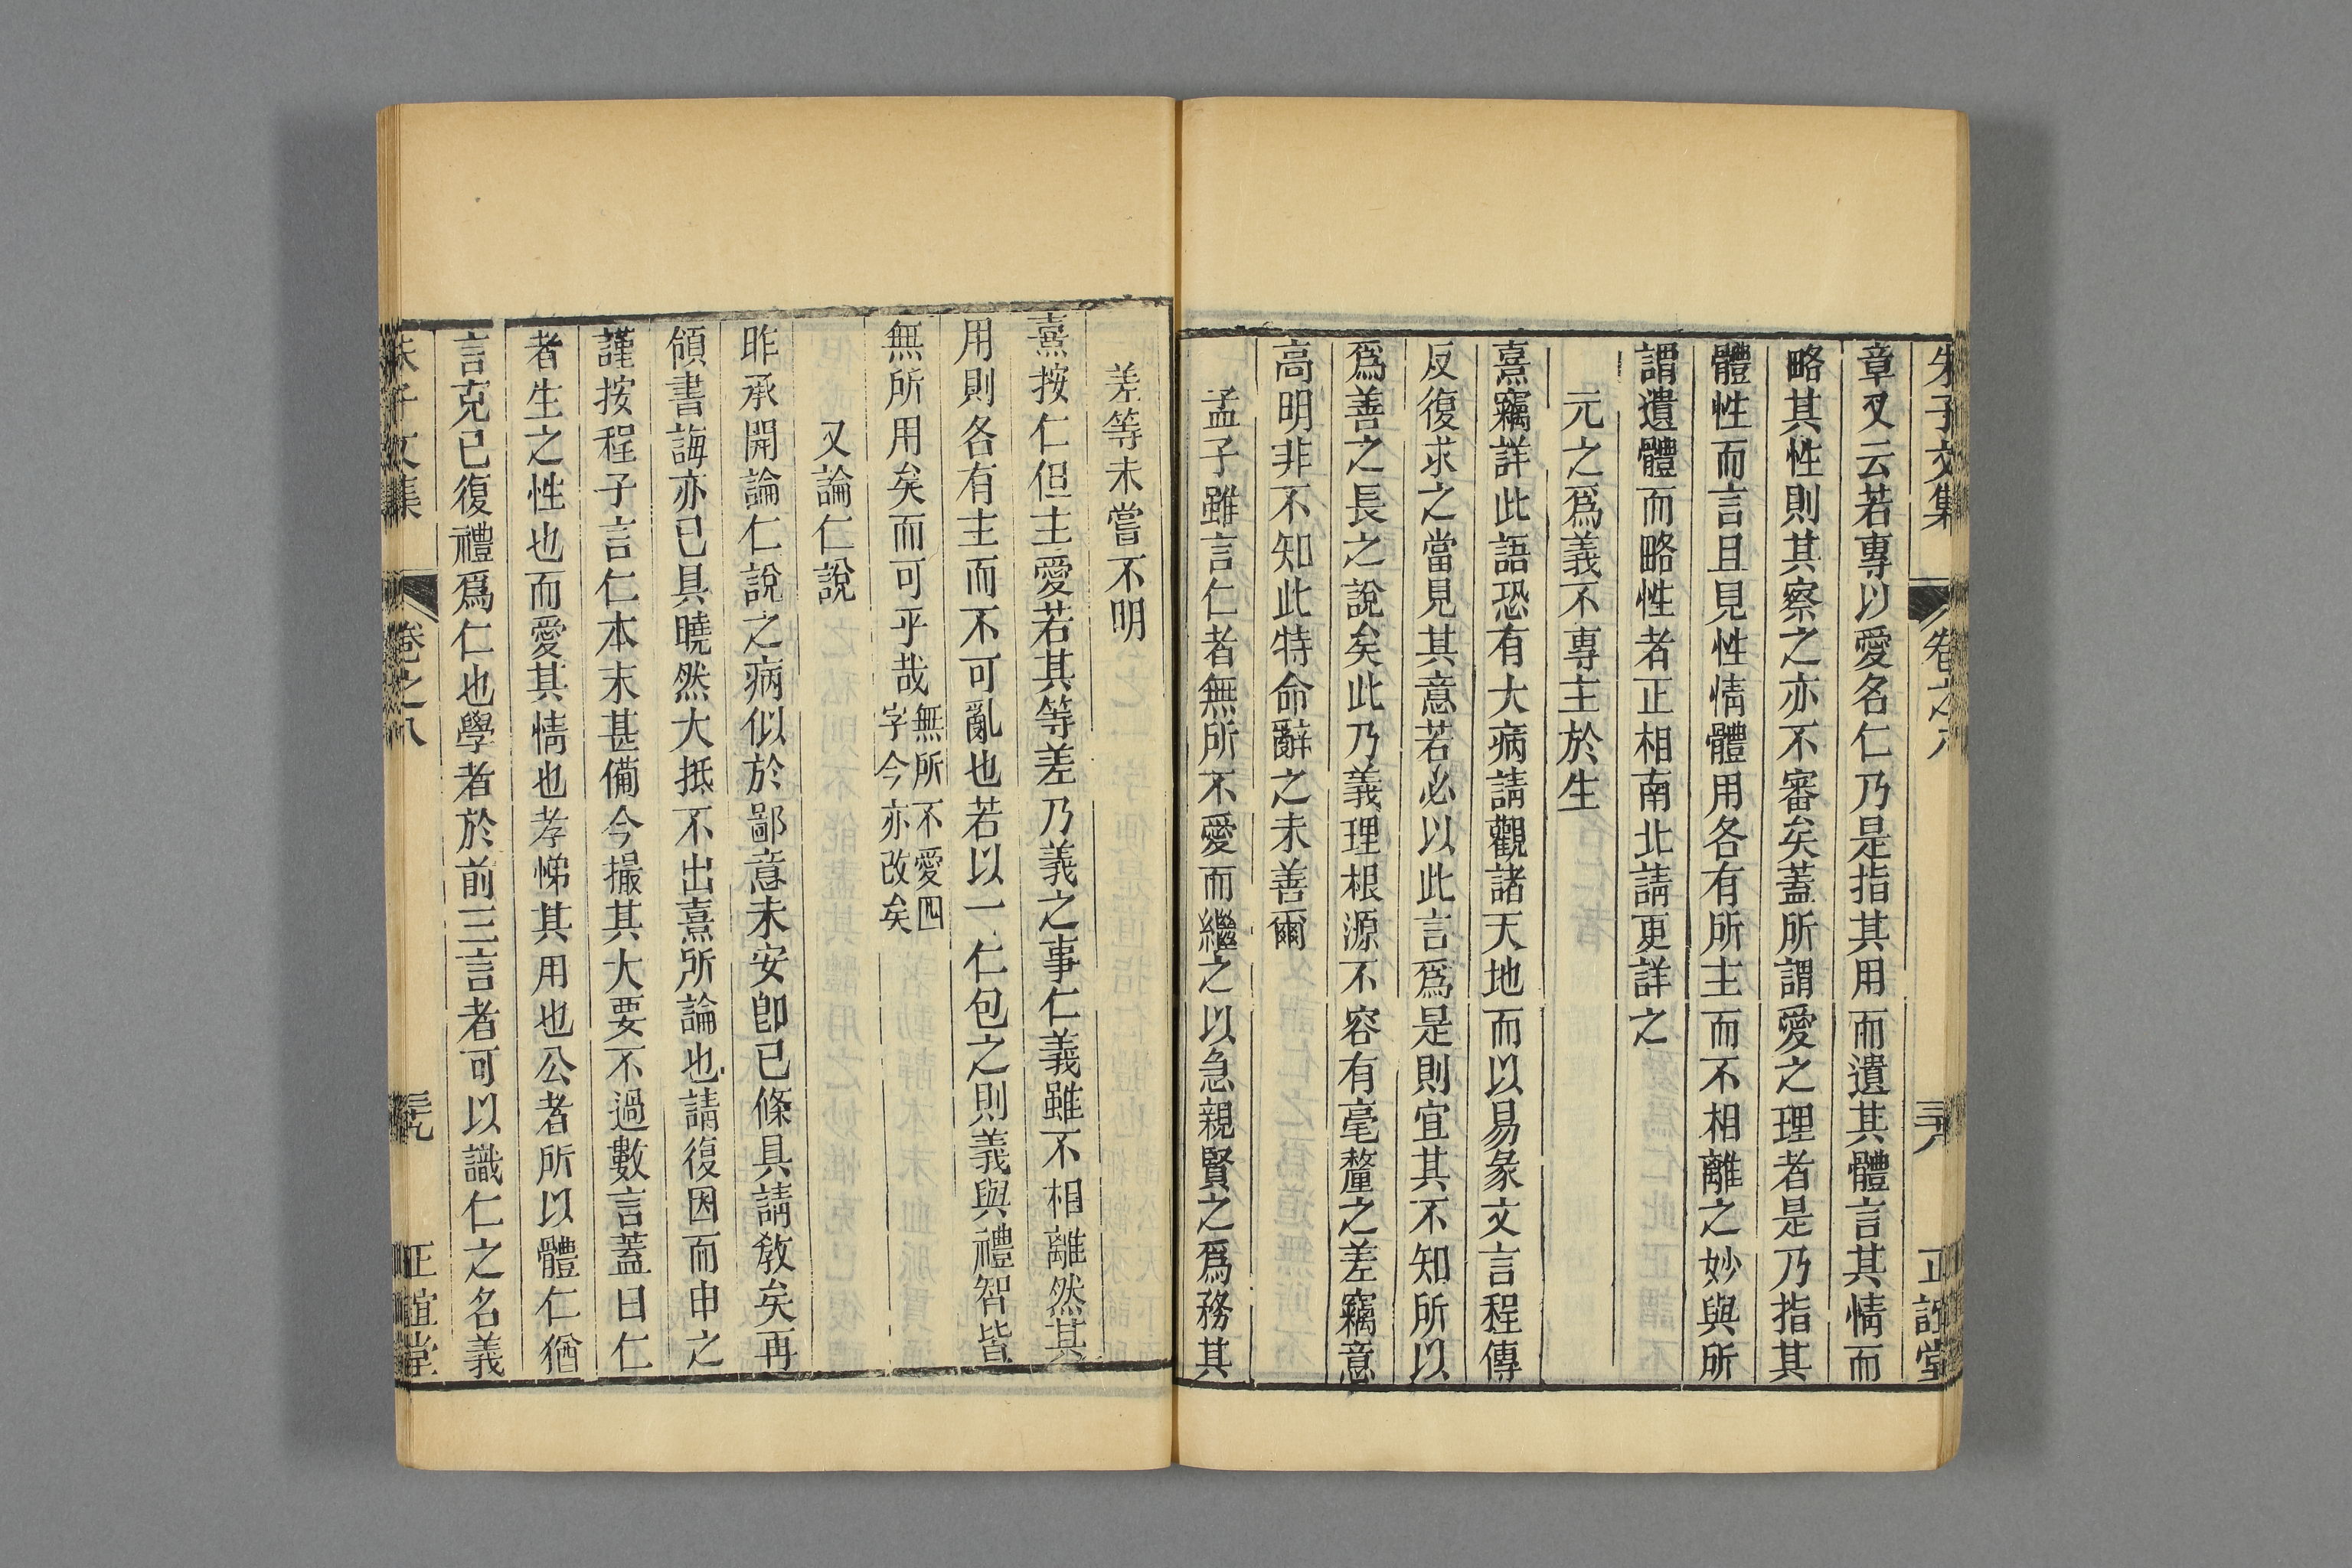 朱子文集 卷之八 三八 正誼堂
章又云若專以愛名仁乃是指其用而遺其體言其情而
略其性則其察之亦不審矣蓋所謂愛之理者是乃指其
體性而言且見性情體用各有所主而不相離之妙與所
謂遺體而略性者正相南北請更詳之
元之爲義不專主於生
熹竊詳此語恐有大病請觀諸天地而以易彖文言程傳
反復求之當見其意若必以此言爲是則宜其不知所以
爲善之長之說矣此乃義理根源不容有毫釐之差竊意
高明非不知此特命辭之未善爾
孟子雖言仁者無所不愛而繼之以急親賢之爲務其
差等未嘗不明
熹按仁但主愛若其等差乃義之事仁義雖不相離然其
用則各有主而不可亂也若以一仁包之則義與禮智皆
無所用矣而可乎哉無所不愛四字今亦改矣
又論仁說
昨承開論仁說之病似於鄙意未安卽已條具請教矣再
領書誨亦已具曉然大抵不出熹所論也請復因而申之
謹按程子言仁本末甚備今撮其大要不過數言蓋曰仁
者生之性也而愛其情也孝悌其用也公者所以體仁猶
言克已復禮爲仁也學者於前三言者可以識仁之名義
朱子文集 卷之八 三九 正誼堂